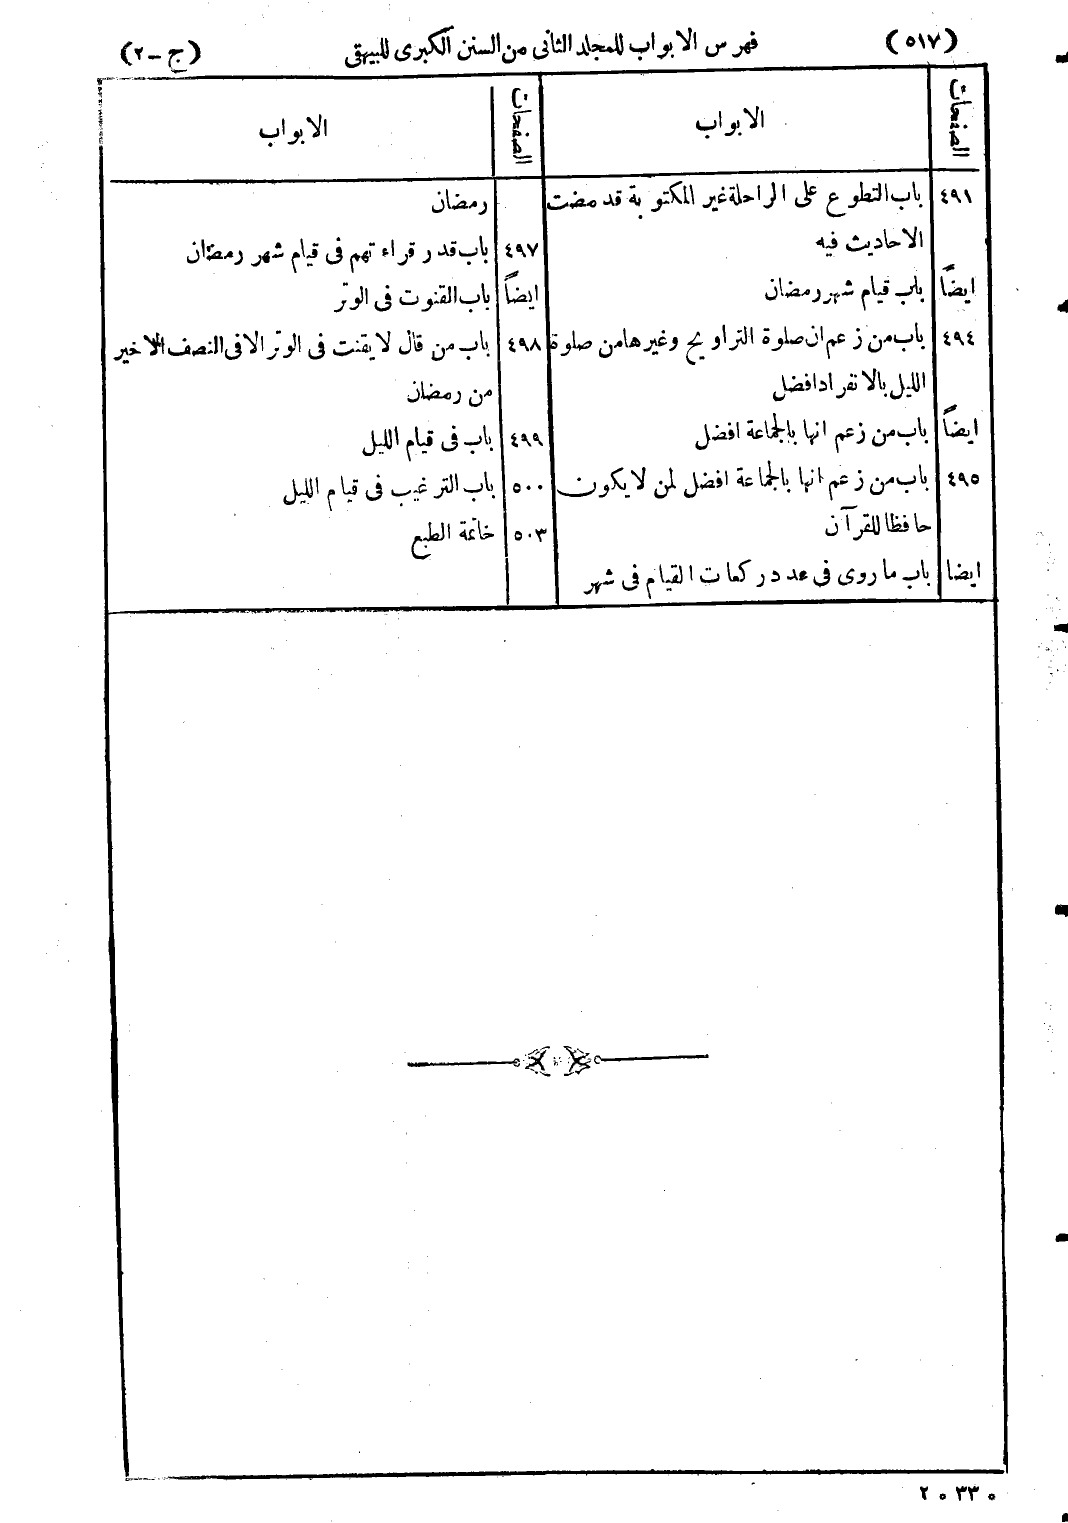 (٥١٧) فهرس الابواب للمجلد الثانى من السنن الكبرى للبيهقى (ج-٢)
الصفحات الابواب
٤٩١ باب التطوع على الراحلة غير المكتوبة قد مضت
الاحاديث فيه
ايضاً باب قيام شهر رمضان
٤٩٤ باب من زعم ان صلوة التراويح وغيرها من صلوة
الليل بالانفراد افضل
ايضاً باب من زعم انها بالجماعة افضل
٤٩٥ باب من زعم انها بالجماعة افضل لمن لا يكون
حافظا للقرآن
ايضا باب ما روى فى عدد ركعات القيام فى شهر
الصفحات الابواب
رمضان
٤٩٧ باب قدر قراءتهم فى قيام شهر رمضان
ايضاً باب القنوت فى الوتر
٤٩٨ باب من قال لا يقنت فى الوتر الا فى النصف الاخير
من رمضان
٤٩٩ باب فى قيام الليل
٥٠٠ باب الترغيب فى قيام الليل
٥٠٣ خاتمة الطبع